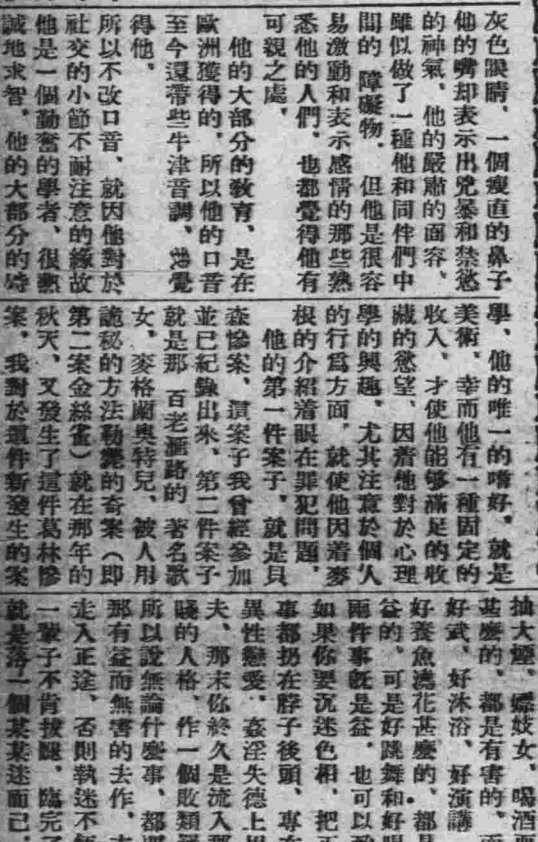 灰色眼睛、一個瘦直的鼻子
他的嘴却表示出兇暴和禁慾
的神氣、他的嚴肅的面容、
雖似做了一種他和同伴們中
間的、障礙物、但他是很容
易激動和表示感情的那些熟
悉他的人們、也都覺得他有
可親之處、
他的大部分的教育、是在
歐洲獲得的、所以他的口音
至今還帶些牛津音調、覺
得他、
所以不改口音、就因他對於
社交的小節不耐注意的緣故
他是一個勤奮的學者、很熱
誠地求智、他的大部分的時
學、他的唯一的嗜好、就是
美術、幸而他有一種固定的
收入、才使他能够滿足的收
藏的慾望、因着他對於心理
學的興趣、尤其注意於個人
的行爲方面、就使他因着麥
根的介紹着眼在罪犯問題、
他的第一件案子、就是貝
森慘案、這案子我曾經參加
並已紀錄出來、第二件案子
就是那 百老滙路的 著名歌
女、麥格蘭奧特兒、被人用
詭秘的方法勒斃的奇案（即
第二案金絲雀）就在那年的
秋天、又發生了這件葛林慘
案、我對於這件新發生的案
抽大煙、嫖妓女、喝酒
甚麼的、都是有害的、而
好武、好沐浴、好演講
好養魚澆花甚麼的、都是
益的、可是好跳舞和好
兩件事旣是益、也可以
如果你要沉迷色相、把正
事都扔在脖子後頭、專在
異性戀愛、姦淫失德上
夫、那末你終久是流入
賤的人格、作一個敗類
所以說無論什麼事、都
那有益而無害的去作、
走入正途、否則執迷不
一輩子不肯拔腿、臨完了
就是落一個某某迷而已、